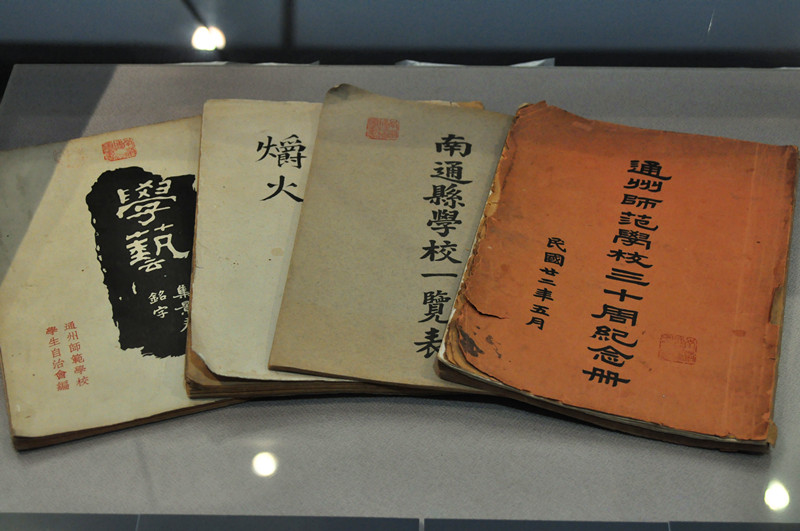 學藝
銘字
通州師範學校
學生自治會編
爝火
南通縣學校一覽表
通州师范學校三十周紀念册
民國廿二年五月